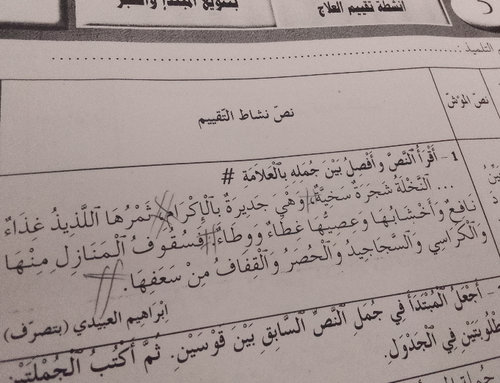 أنشطة تقييم العلاج
بتنويع المبتدإ والخبر
التلميذ :
نص المؤشر
نصّ نشاط التّقييم
1 - أَقْرَأُ النَّصَّ وَأَفْصِلُ بَيْنَ جُمَلِهِ بِالْعَلَامَةِ #
... النَّخْلَةُ شَجَرَةٌ سَخِيَّةٌ، وَهْيَ جَدِيرَةٌ بِالْإِكْرَامِ # ثَمَرُهَا اللَّذِيذُ غِذَاءٌ
نَافِعٌ وَأَخْشَابُهَا وَعِصِيُّهَا غِطَاءٌ وَوِطَاءٌ # فَسُقُوفُ الْمَنَازِلِ مِنْهَا
وَالْكَرَاسِي وَالسَّجَاجِيدُ وَالْحُصُرُ وَالْقِفَافُ مِنْ سَعَفِهَا. #
إبراهيم العبيدي (بتصرف)
- أَجْعَلُ الْمُبْتَدَأَ فِي جُمَلِ النَّصِّ السَّابِقِ بَيْنَ قَوْسَيْنِ. ثُمَّ أَكْتُبُ الْجُمْلَتَيْنِ
فِي الْجَدْوَلِ.